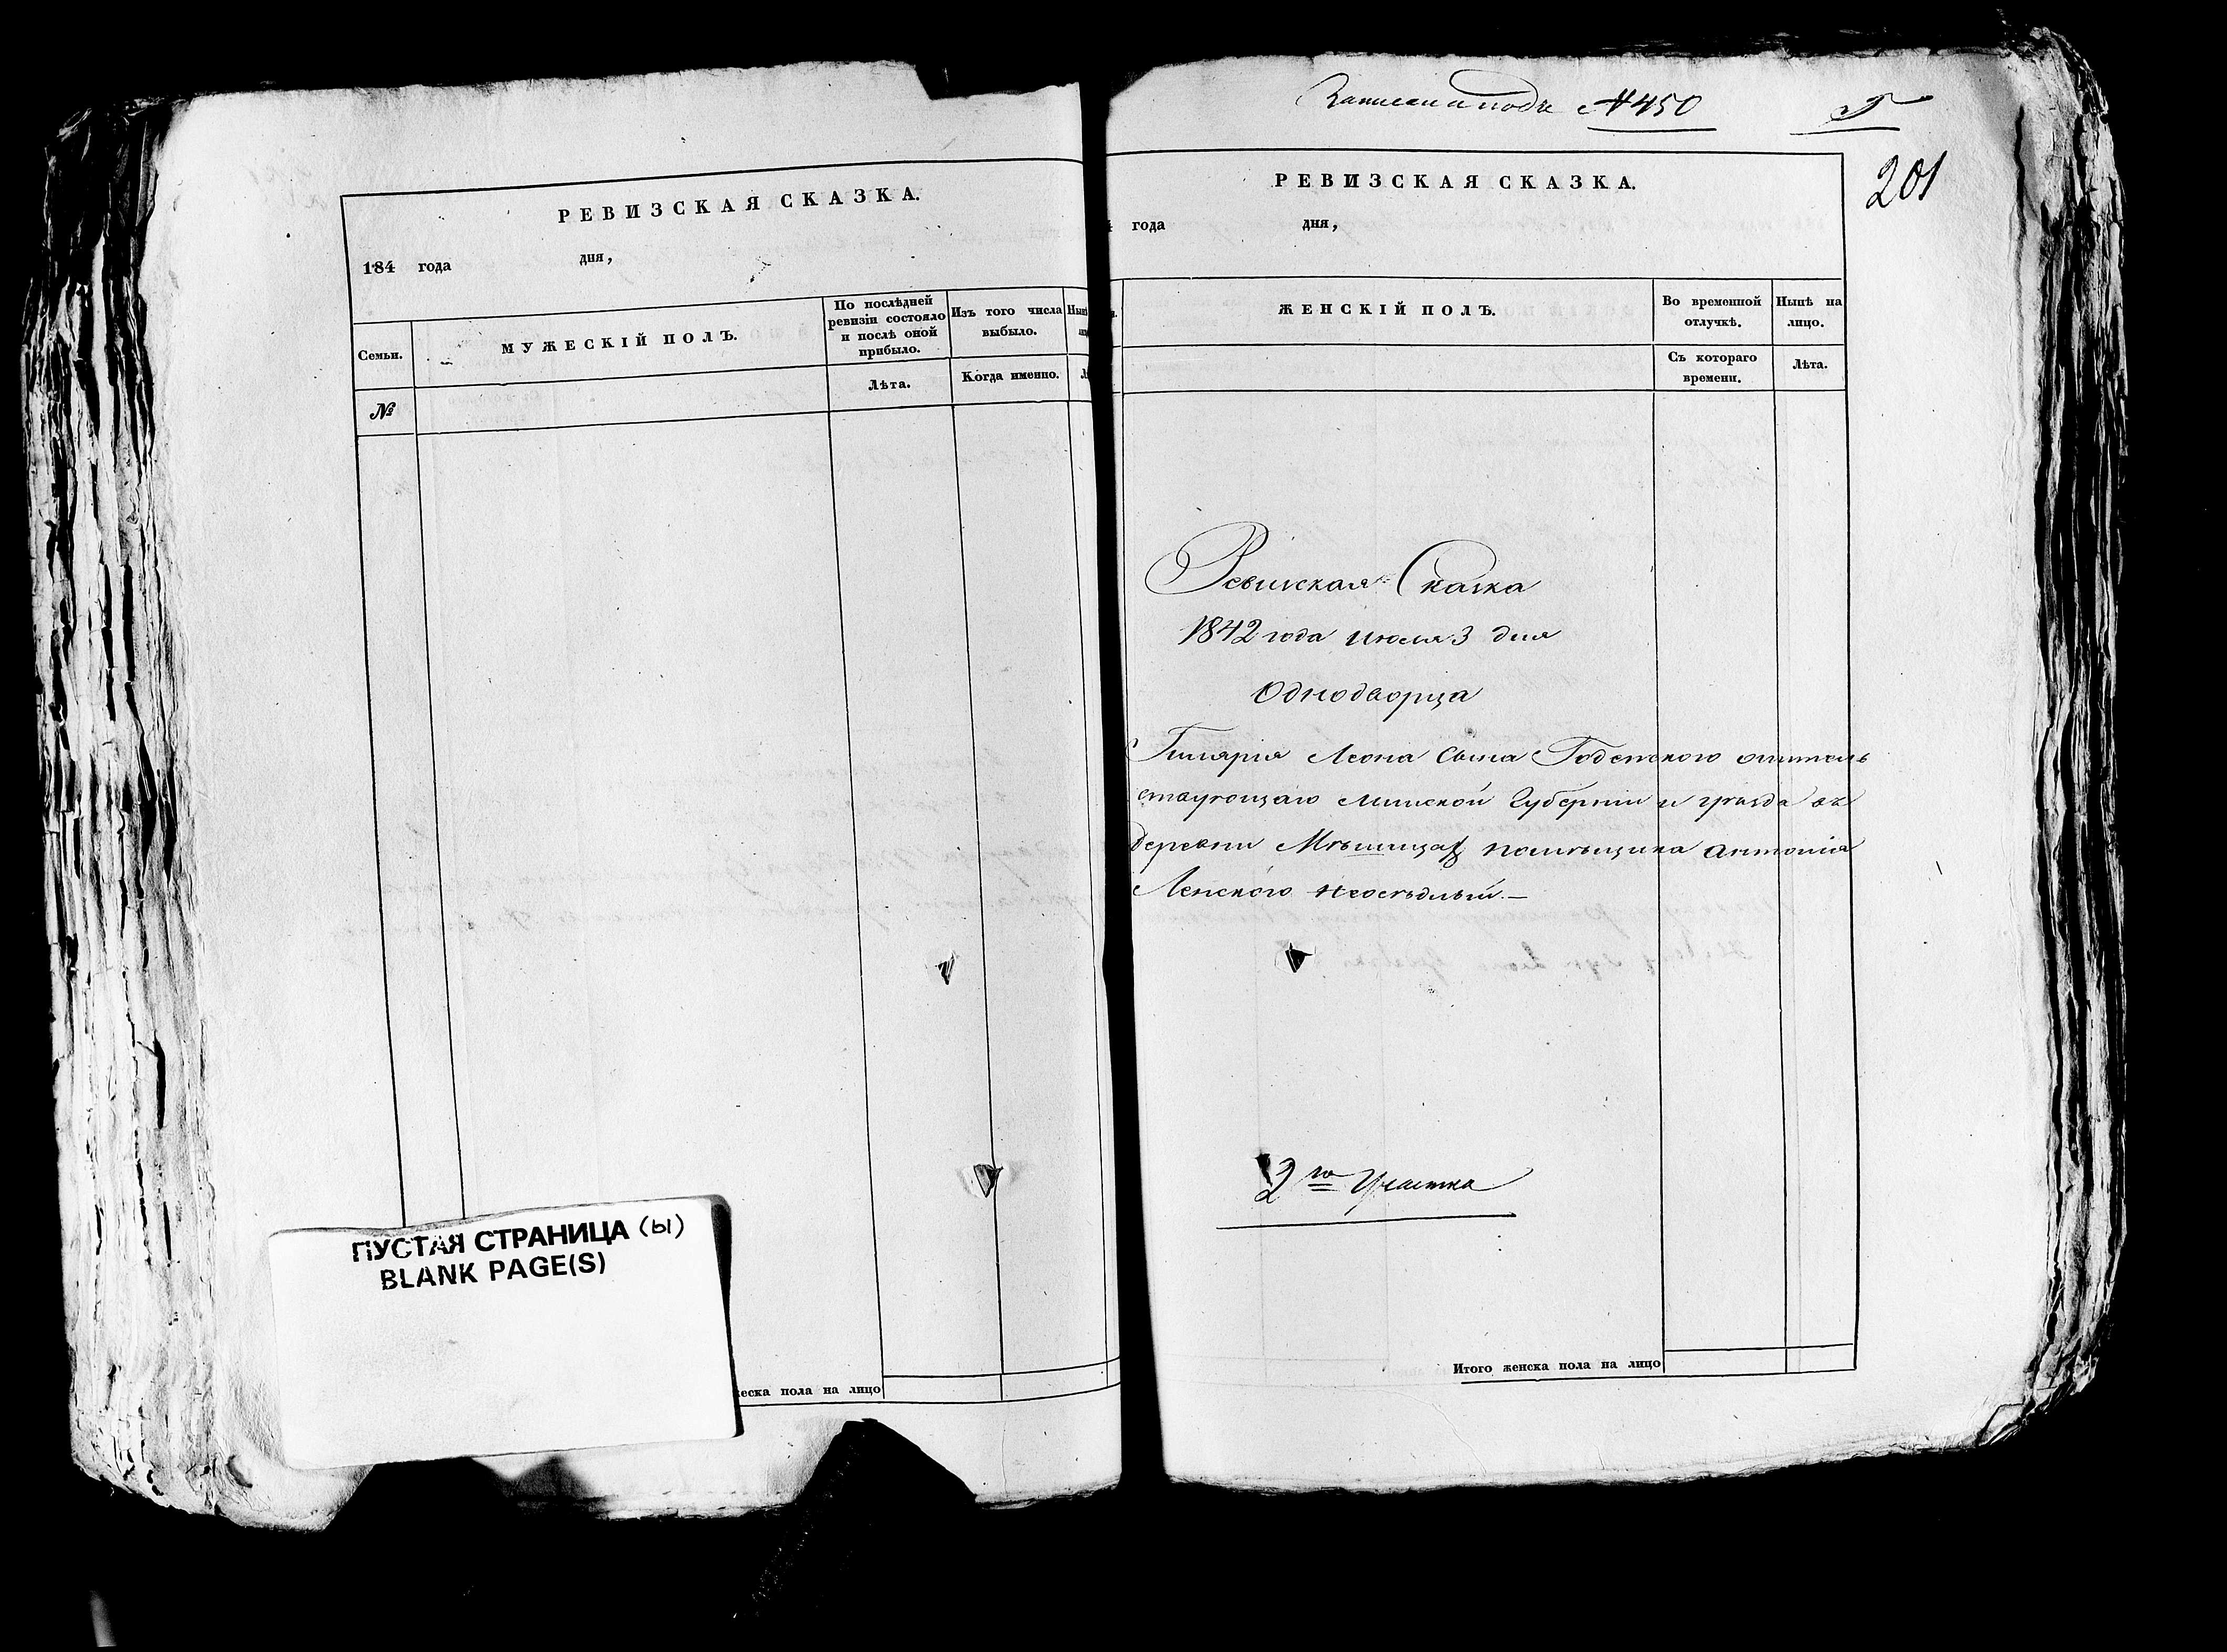 РЕВИЗСКАЯ СКАЗКА.
184 года дня,
Семьи.
МУЖЕСКІЙ ПОЛЪ.
По послѣдней ревизіи состояло и послѣ оной прибыло.
Изъ того числа выбыло.
Лѣта.
Когда именно.
№
ПУСТАЯ СТРАНИЦА (ы)
BLANK PAGE(S)
жеска пола на лицо
Записана подъ №450
201
РЕВИЗСКАЯ СКАЗКА.
года дня,
ЖЕНСКІЙ ПОЛЪ.
Во временной отлучкѣ.
Нынѣ на лицо.
Съ котораго времени.
Лѣта.
Ревизская Сказка
1842 года июля 3 дня
Однодворца
Гилярія Леона сына
ствующаго Минской Губерніи и уѣзда въ
деревни помѣщика Антонія
Ленскаго неосѣдлый.—
2го Участка
Итого женска пола на лицо